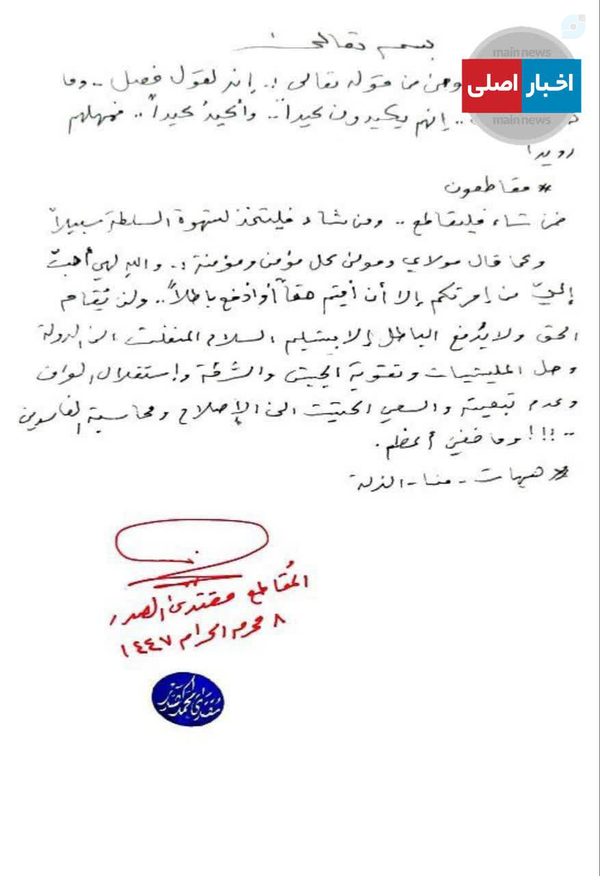 بسمه تعالى
main news
اخبار اصلی
main news
من قوله تعالى :. إنه لقول فصل .. وما
.. إنهم يكيدون كيداً .. وأكيدُ كيداً .. فمهلهم
رويدا
* مقاطعون
فمن شاء فليقاطع .. ومن شاء فليتخذ لشهوة السلطة سبيلاً
وكما قال مولاي ومولى كل مؤمن ومؤمنة :. والله لهي أحبّ
إليّ من إمرتكم إلا أن أقيم حقاً أو أدفع باطلاً .. ولن يُقام
الحق ولا يُدفع الباطل إلا بتسليم السلاح المنفلت الى الدولة
وحل المليشيات وتقوية الجيش والشرطة وإستقلال العراق
وعدم تبعيته والسعي الحثيث الى الإصلاح ومحاسبة الفاسدين
.. !!! وما خفي أعظم .
# هيهات - منا - الذلة
المُقاطع مقتدى الصدر
٨ محرم الحرام ١٤٤٧